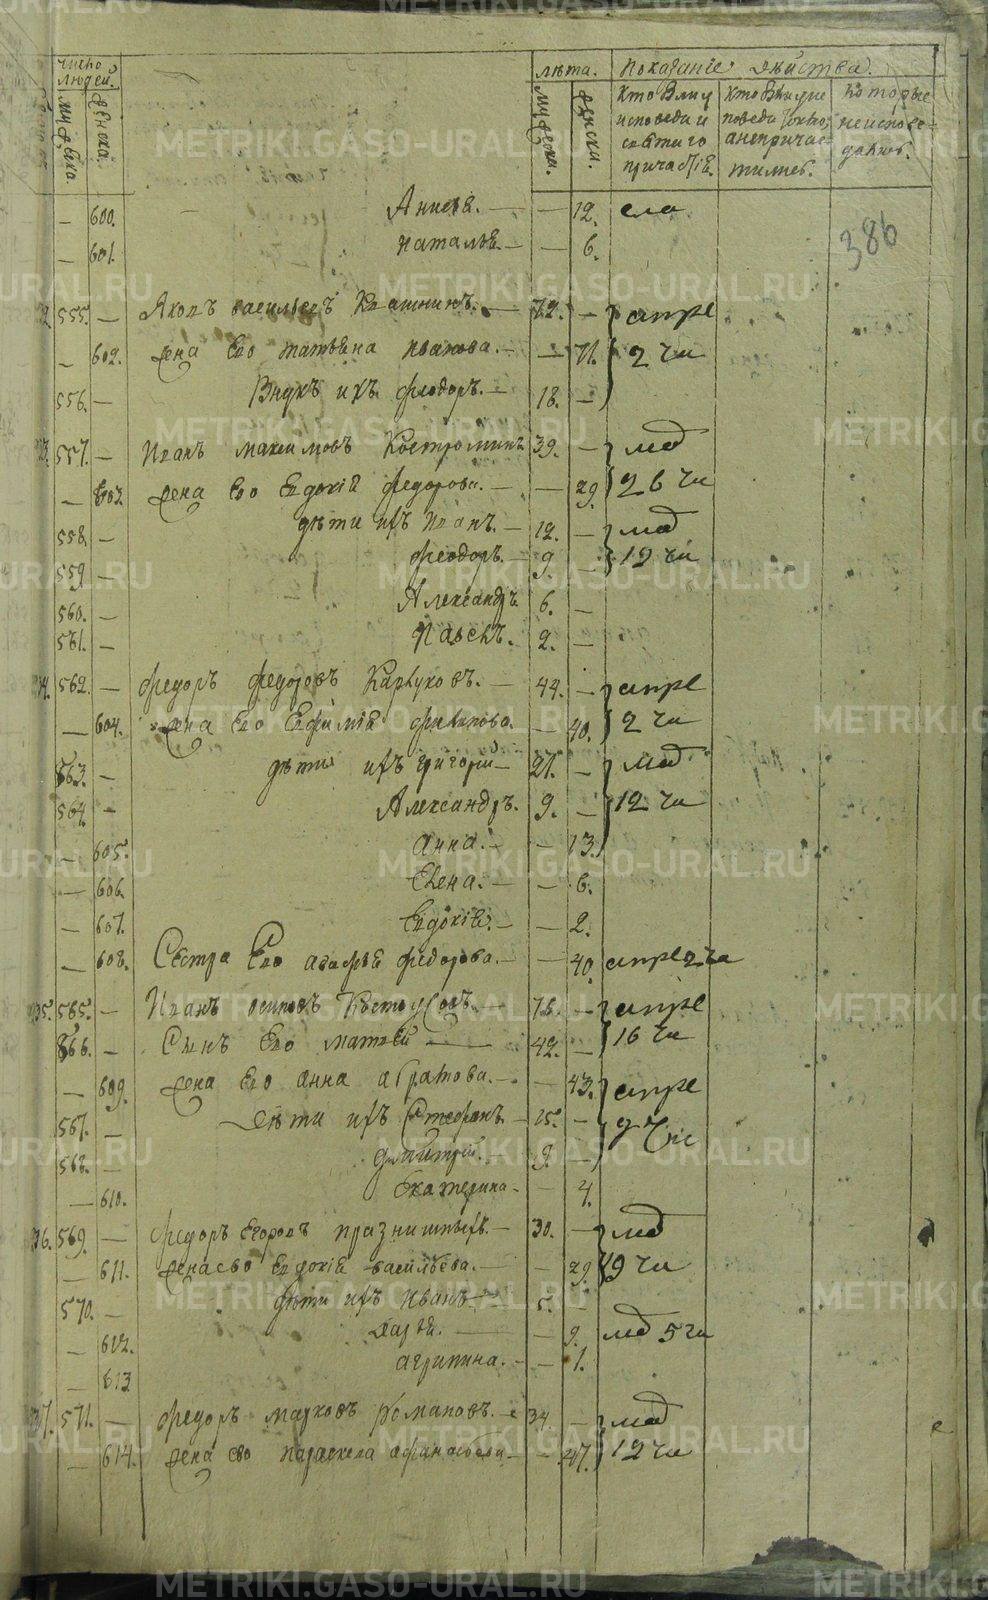 число людей.
мужеска.
женска.
лѣта.
мужески.
женски.
Показаніе дѣйства.
Кто былъ у исповеди и святаго причастія.
Кто былъ исповеди токмо, а непричастились.
Которые неисповедались.
386
— 600. Анисія. — — 12. ела
— 601. Наталья. — — 6.
555. — Яковъ васильевъ Квашнинъ. — 72. — апре
— 602. жена Его татьяна иванова. — — 71. 2 чи
556. — Внукъ ихъ феодоръ. — 18. —
557. — Иванъ максимовъ Костроминъ 39. — мар
— 603. жена Его Евдокія федорова. — — 29. 26 чи
558. — дѣти ихъ Иванъ. — 12. — мар
559 — феодоръ. — 9. — 12 чи
560. — Александръ 6. —
561. — Павелъ. — 2. —
562. — федоръ федоровъ Каръуковъ. — 44. — апре
— 604. жена Его Ефимія филипова. — 40. 2 чи
563. — дѣти ихъ григорій — 21. — мар
564. — Александръ. 9. — 12 чи
— 605. анна. — — 13.
— 606. Елена. — — 6.
— 607. Евдокія. — — 2.
— 608. Сестра Его агафья федорова. — — 40. апре 2 чи
35. 565. — Иванъ осиповъ Костоусовъ. — 78. — апре
566. — Сынъ Его матвей — 42. — 16 чи
— 609. жена Его анна абрамова. — — 43. апре
567. — дѣти ихъ Стефанъ. — 15. — 9 чис
568. — димитрій. — 9. —
— 610. Екатерина — — 4.
36. 569. — федоръ Егоровъ празнишныхъ. — 30. — мар
— 611. жена Его Евдокія васильева. — — 29. 19 чи
570. — дѣти ихъ иванъ — 5. —
— 612. дарья. — — 9. мар 5 чи
— 613 агрипина. — — 1.
37. 571. — федоръ марковъ романовъ. — 34 — мар
— 614. жена Его параскева афанасьева — — 47. 12 чи
METRIKI.GASO-URAL.RU